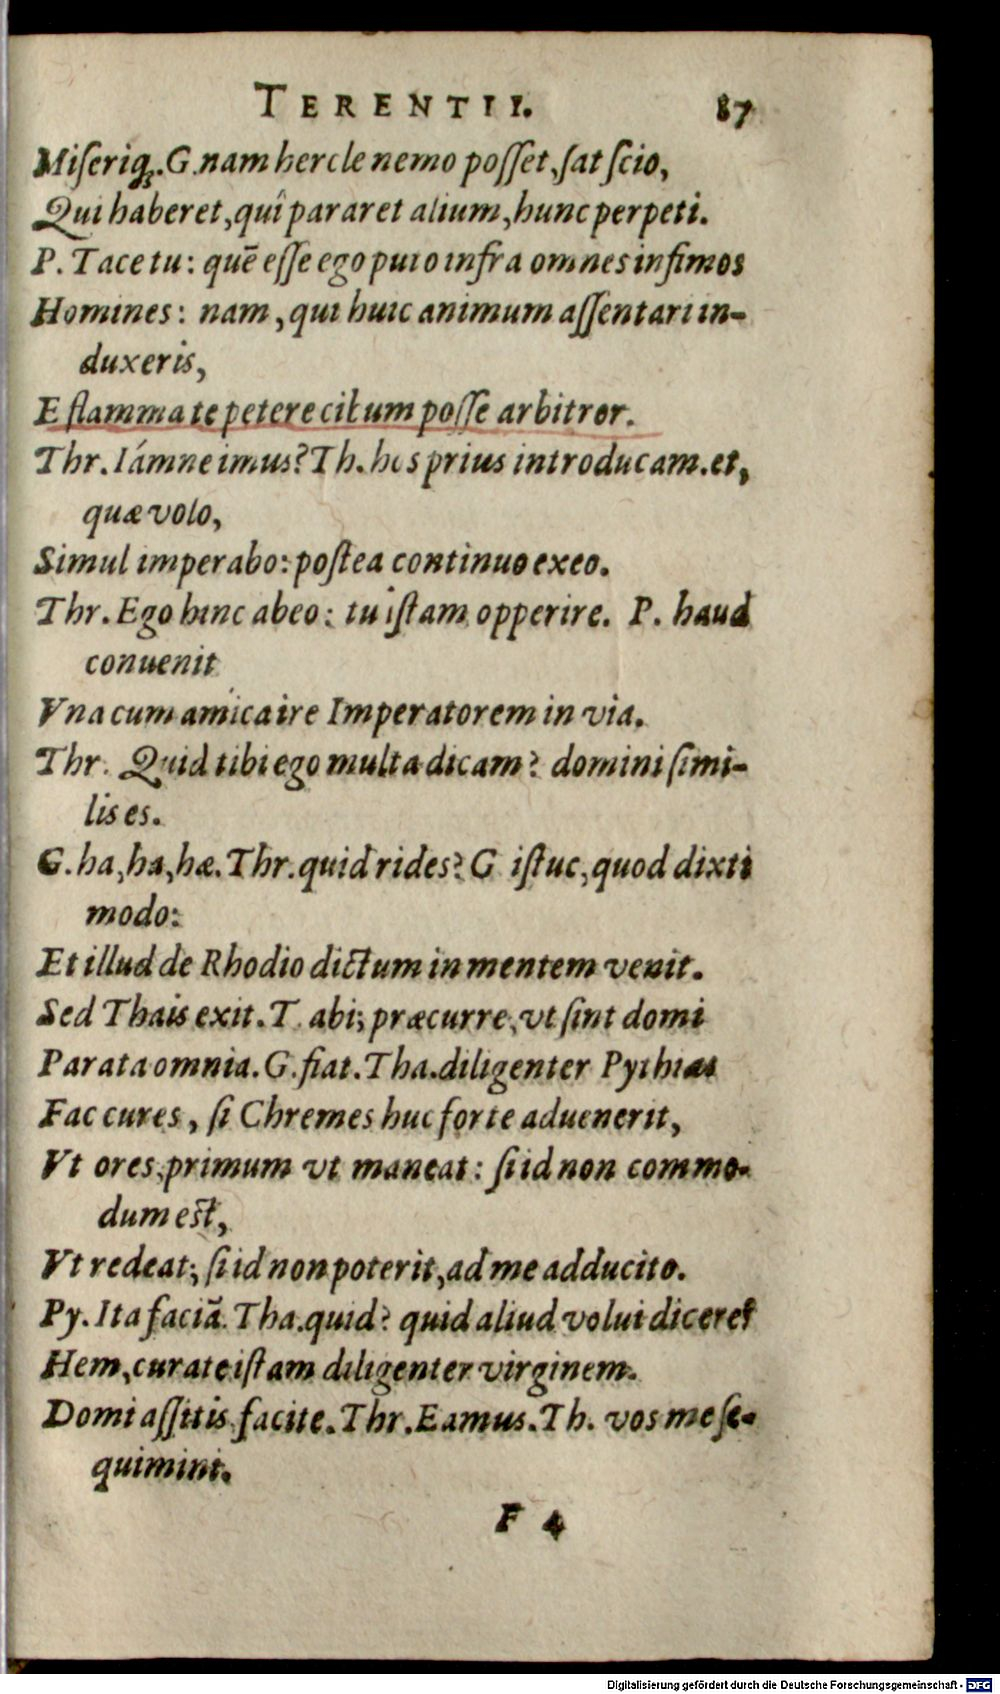 TERENTII. 87
Miſeriq;. G. nam hercle nemo poſſet, ſat ſcio,
Qui haberet, quî pararet alium, hunc perpeti.
P. Tace tu: quē eſſe ego puto infra omnes infimos
Homines: nam, qui huic animum aſſentari in-
duxeris,
E flamma te petere cibum poſſe arbitror.
Thr. Iámne imus? Th. hos prius introducam. et,
quæ volo,
Simul imperabo: poſtea continuo exeo.
Thr. Ego hinc abeo: tu iſtam opperire. P. haud
conuenit
Vna cum amica ire Imperatorem in via.
Thr. Quid tibi ego multa dicam? domini ſimi-
lis es.
G. ha, ha, hæ. Thr. quid rides? G iſtuc, quod dixti
modo:
Et illud de Rhodio dictum in mentem venit.
Sed Thais exit. T. abi; præcurre, vt ſint domi
Parata omnia. G. fiat. Tha. diligenter Pythias
Fac cures, ſi Chremes huc forte aduenerit,
Vt ores, primum vt maneat: ſi id non commo-
dum eſt,
Vt redeat; ſi id non poterit, ad me adducito.
Py. Ita faciā. Tha. quid? quid aliud volui dicere?
Hem, curate iſtam diligenter virginem.
Domi aſſitis facite. Thr. Eamus. Th. vos me ſe-
quimini.
F 4
Digitalisierung gefördert durch die Deutsche Forschungsgemeinschaft - DFG